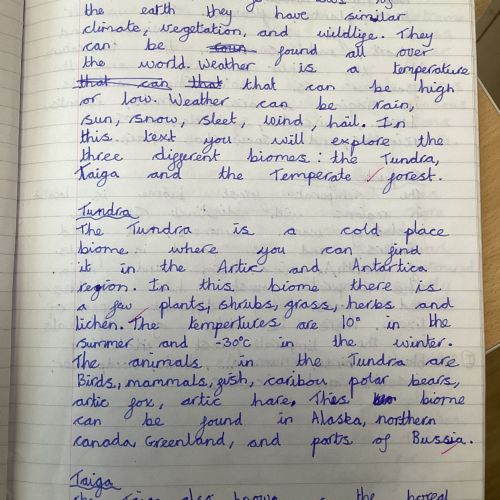 the earth they have similar
climate, vegetation, and wildlife. They
can be found all over
the world. Weather is a temperature
that can that that can be high
or low. Weather can be rain,
sun, snow, sleet, wind, hail. In
this text you will explore the
three different biomes: the Tundra,
Taiga and the Temperate forest.
Tundra
The Tundra is a cold place
biome where you can find
it in the Artic and Antartica
region. In this biome there is
a few plants, shrubs, grass, herbs and
lichen. The tempertures are 10° in the
summer and -30°c in the winter.
The animals in the Tundra are
Birds, mammals, fish, caribou polar bears,
artic fox, artic hare. This biome
can be found in Alaska, northern
canada, Greenland, and parts of Bussia.
Taiga
the boreal